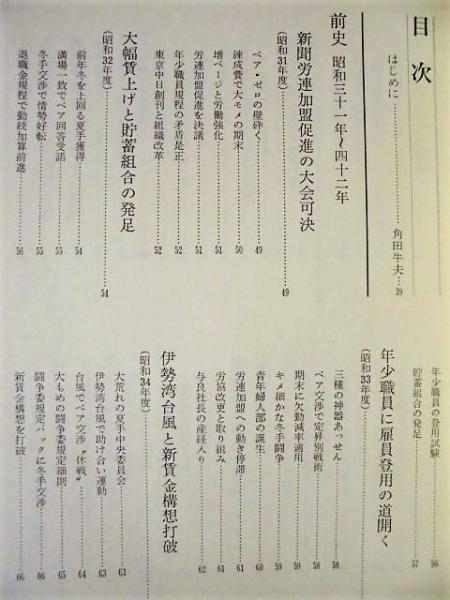 目次
はじめに……………………角田牛夫…39
前史 昭和三十一年〜四十二年
新聞労連加盟促進の大会可決……………49
(昭和31年度)
ベア・ゼロの壁砕く……………49
練成費で大モメの期末……………50
増ページと労働強化……………51
労連加盟促進を決議……………51
年少職員規程の矛盾是正……………52
東京中日創刊と組織改革……………52
大幅賃上げと貯蓄組合の発足……………54
(昭和32年度)
前年冬を上回る夏手獲得……………54
満場一致でベア回答受諾……………55
冬手交渉で情勢好転……………55
退職金規程で勤続加算前進……………56
年少職員の登用試験……………56
貯蓄組合の発足……………57
年少職員に雇員登用の道開く
(昭和33年度)
三種の神器あっせん……………58
ベア交渉で定昇別戦術……………58
期末に欠勤減率適用……………59
キメ細かな冬手闘争……………59
青年婦人部の誕生……………60
労連加盟への動き停滞……………61
労協改更と取り組み……………61
与良社長の産経入り……………62
伊勢湾台風と新賃金構想打破
(昭和34年度)
大荒れの夏手中央委員会……………63
伊勢湾台風で助け合い運動……………63
台風でベア交渉〝休戦〟……………64
大もめの闘争委規定細則……………65
闘争委規定バックに冬手交渉……………66
新賃金構想を打破……………66